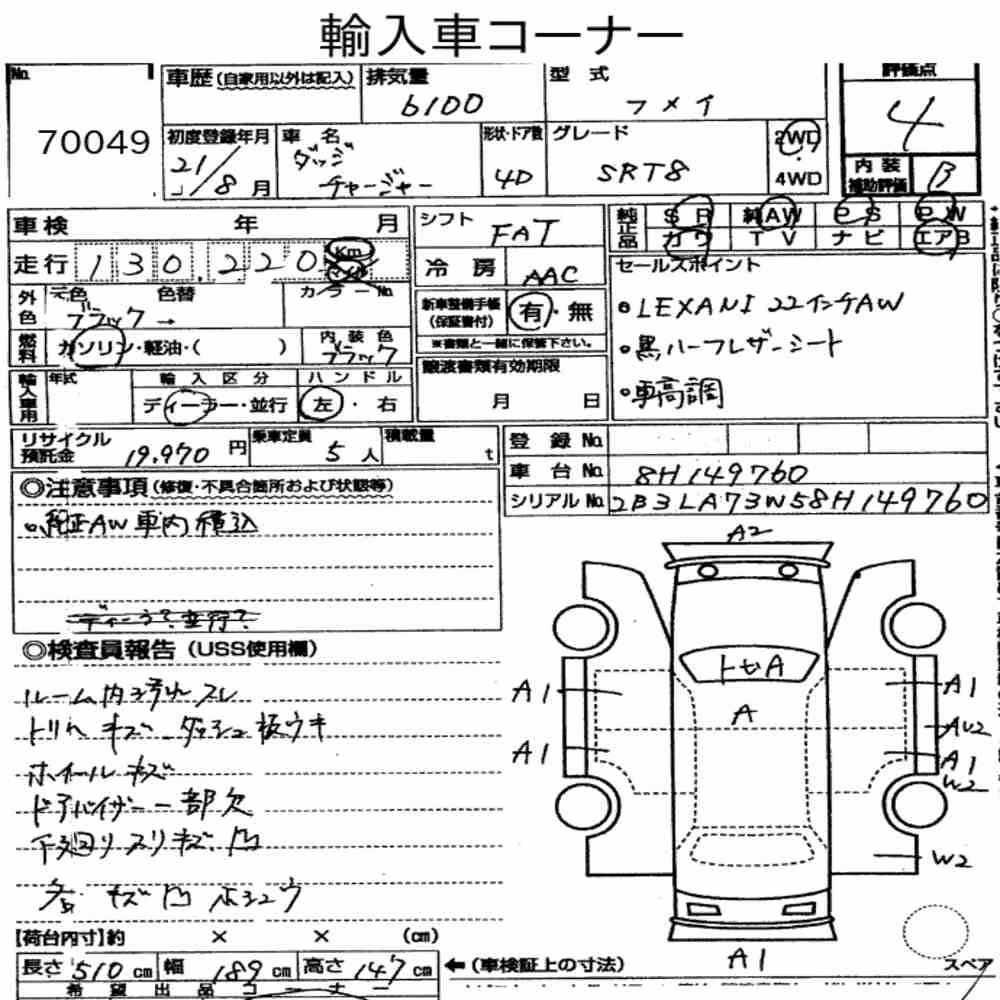 輸入車コーナー
No. 70049
車歴(自家用以外は記入)
排気量 6100
型式 フメイ
評価点 4
初度登録年月 21/8月
車名 ダッジ チャージャー
形状・ドア数 4D
グレード SRT8
2WD
4WD
内装補助評価 B
車検 年 月
シフト FAT
純正品 SR 純AW PS PW
カワ TV ナビ エアB
走行 130,220 Km マイル
冷房 AAC
セールスポイント
外色 元色 色替 カラーNo
ブラック→
新車整備手帳(保証書付) 有・無
※書類と一緒に保管下さい。
・LEXANI 22インチAW
燃料 ガソリン・軽油・( )
内装色 ブラック
・黒ハーフレザーシート
譲渡書類有効期限
月 日
・車高調
輸入車用 年式 輸入区分 ハンドル
ディーラー・並行 左・右
リサイクル預託金 19,970円
乗車定員 5人
積載量 t
登録No.
車台No. 8H149760
シリアルNo. 2B3LA73W58H149760
◎注意事項(修復・不具合箇所および状態等)
・純正AW車内積込
ディーラ?並行?
◎検査員報告(USS使用欄)
ルーム内汚れスレ
トリムキズ ダッシュ板ウキ
ホイールキズ
ドアバイザー一部欠
下廻りスリキズ、凹
各キズ凹
A2
トビA
A1
A1
A
AU2
A1
A1
W2
W2
A1
スペア
【荷台内寸】約 × × (cm)
長さ 510cm 幅 189cm 高さ 147cm
←(車検証上の寸法)
希望出品コーナー